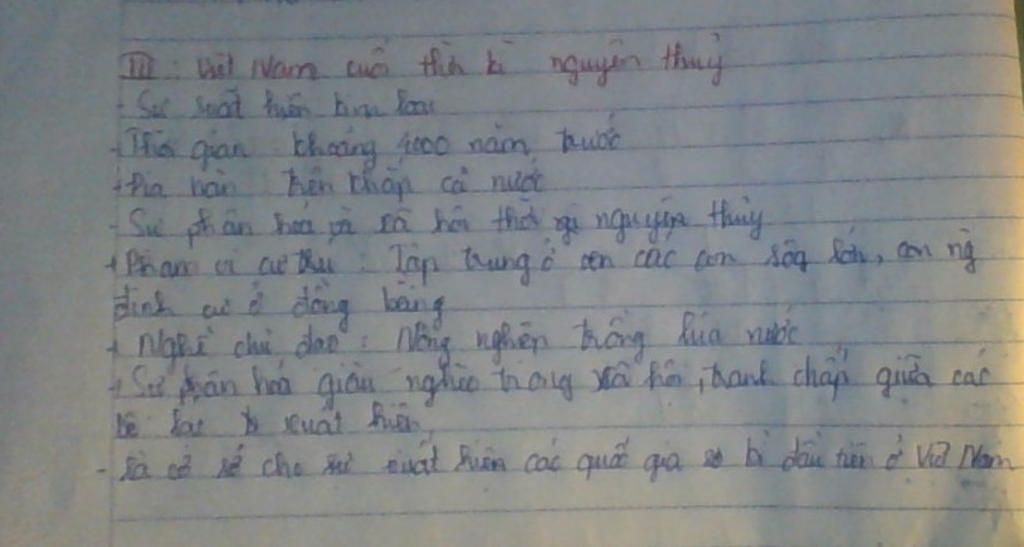 III: Việt Nam cuối thời kì nguyên thuỷ
- Sự suất hiện kim loại
+ Thời gian: khoảng 4000 năm trước
+ Địa bàn: trên khắp cả nước
- Sự phân hoá và xã hội thời nguyên thủy
+ Phạm vi cư trú: Tập trung ở ven các con sông lớn, con ng
định cư ở đồng bằng
+ Nghề chủ đạo: Nông nghiệp trồng lúa nước
+ Sự phân hoá giàu nghèo trong xã hội, tranh chấp giữa các
bộ lạc xuất hiện
- Là cơ sở cho sự xuất hiện các quốc gia sơ kì đầu tiên ở Việt Nam